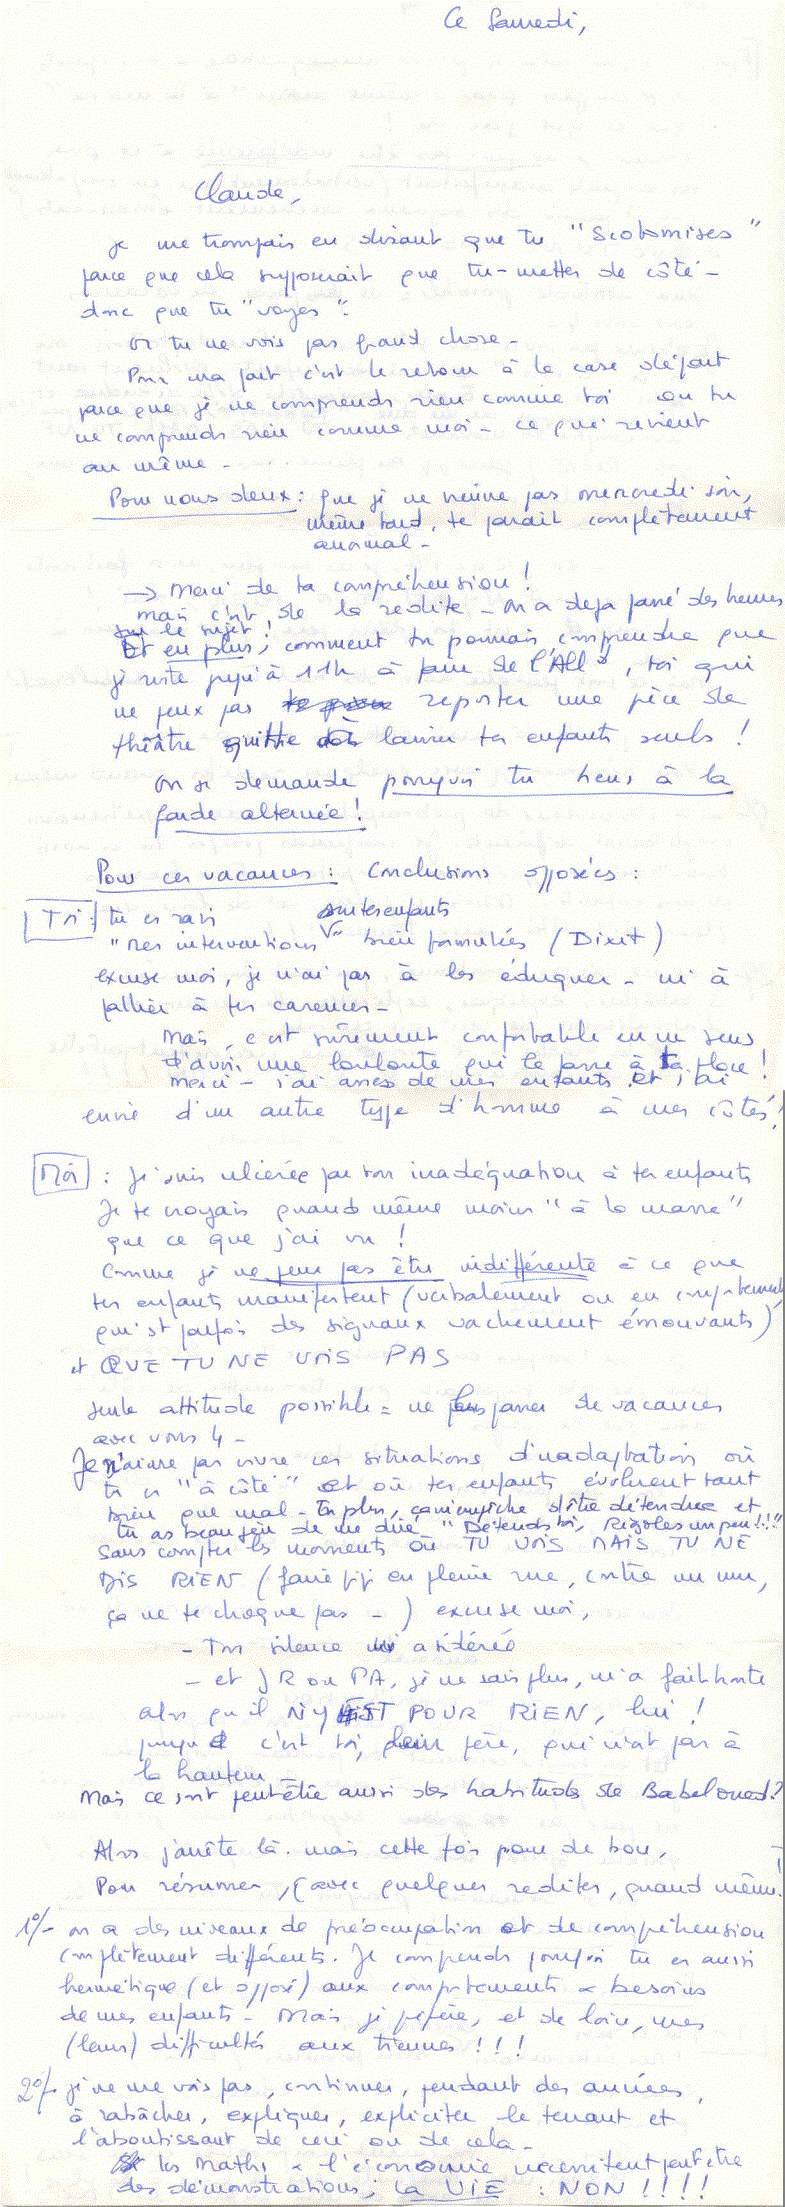 Ce Samedi,
Claude,
je me trompais en disant que tu "Scotomises"
parce que cela supposerait que tu mettes de côté -
donc que tu "voyes".
Or tu ne vois pas grand chose -
Pour ma part c'est le retour à la case départ
parce que je ne comprends rien comme toi ou tu
ne comprends rien comme moi - ce qui revient
au même -
Pour nous deux : que je ne vienne pas mercredi soir,
même tard, te paraît complètement
anormal -
→ Merci de ta compréhension !
mais c'est de la redite - on a deja passé des heures
sur le sujet !
Et en plus, comment tu pourrais comprendre que
je reste jusqu'à 11h à faire de l'All^d, toi qui
ne peux pas reporter une pièce de
théâtre laisser tes enfants seuls !
On se demande pourquoi tu tiens à la
garde alternée !
Pour ces vacances : Conclusions opposées :
Toi : tu es ravi
"mes interventions sur tes enfants bien formulées (Dixit)
excuse moi, je n'ai pas à les éduquer - ni à
pallier à tes carences -
Mais, c'est sûrement confortable en un sens
d'avoir une louloute qui le fasse à ta place !
Merci - j'ai assez de mes enfants et j'ai
envie d'un autre type d'homme à mes côtés !
Moi : Je suis ulcérée par ton inadéquation à tes enfants
Je te croyais quand même moins "à la masse"
que ce que j'ai vu !
Comme je ne peux pas être indifférente à ce que
tes enfants manifestent (verbalement ou en comportement
qui st parfois des signaux vachement émouvants)
et QUE TU NE VOIS PAS
seule attitude possible = ne plus passer de vacances
avec vous 4 -
Je n'aime pas vivre ces situations d'inadaptation où
tu es "à côté" et où tes enfants évoluent tant
bien que mal - En plus, ça m'empêche d'être détendue et
tu as beau jeu de me dire "Détends toi, Rigoles un peu !!!"
Sans compter les moments où TU VOIS MAIS TU NE
DIS RIEN (faire pipi en pleine rue, contre un mur,
ça ne te choque pas -) excuse moi,
- Ton silence m'a sidérée
- et JR ou PA, je ne sais plus, m'a fait honte
alors qu'il N'Y EST POUR RIEN, lui !
puisque c'est toi, leur père, qui n'est pas à
la hauteur
Mais ce sont peut-être aussi des habitudes de Babeloued ?
Alors j'arrête là. mais cette fois pour de bon,
Pour résumer, (avec quelques redites, quand même !
1°/- on a des niveaux de préoccupation et de compréhension
complètement différents. Je comprends pourquoi tu es aussi
hermétique (et opposé) aux comportements & besoins
de mes enfants - Mais je préfère, et de loin, mes
(leurs) difficultés aux tiennes !!!
2°/- je ne me vois pas, continuer, pendant des années,
à rabâcher, expliquer, expliciter le tenant et
l'aboutissant de ceci ou de cela -
les Maths & l'économie nécessitent peut être
des démonstrations, la VIE : NON !!!!